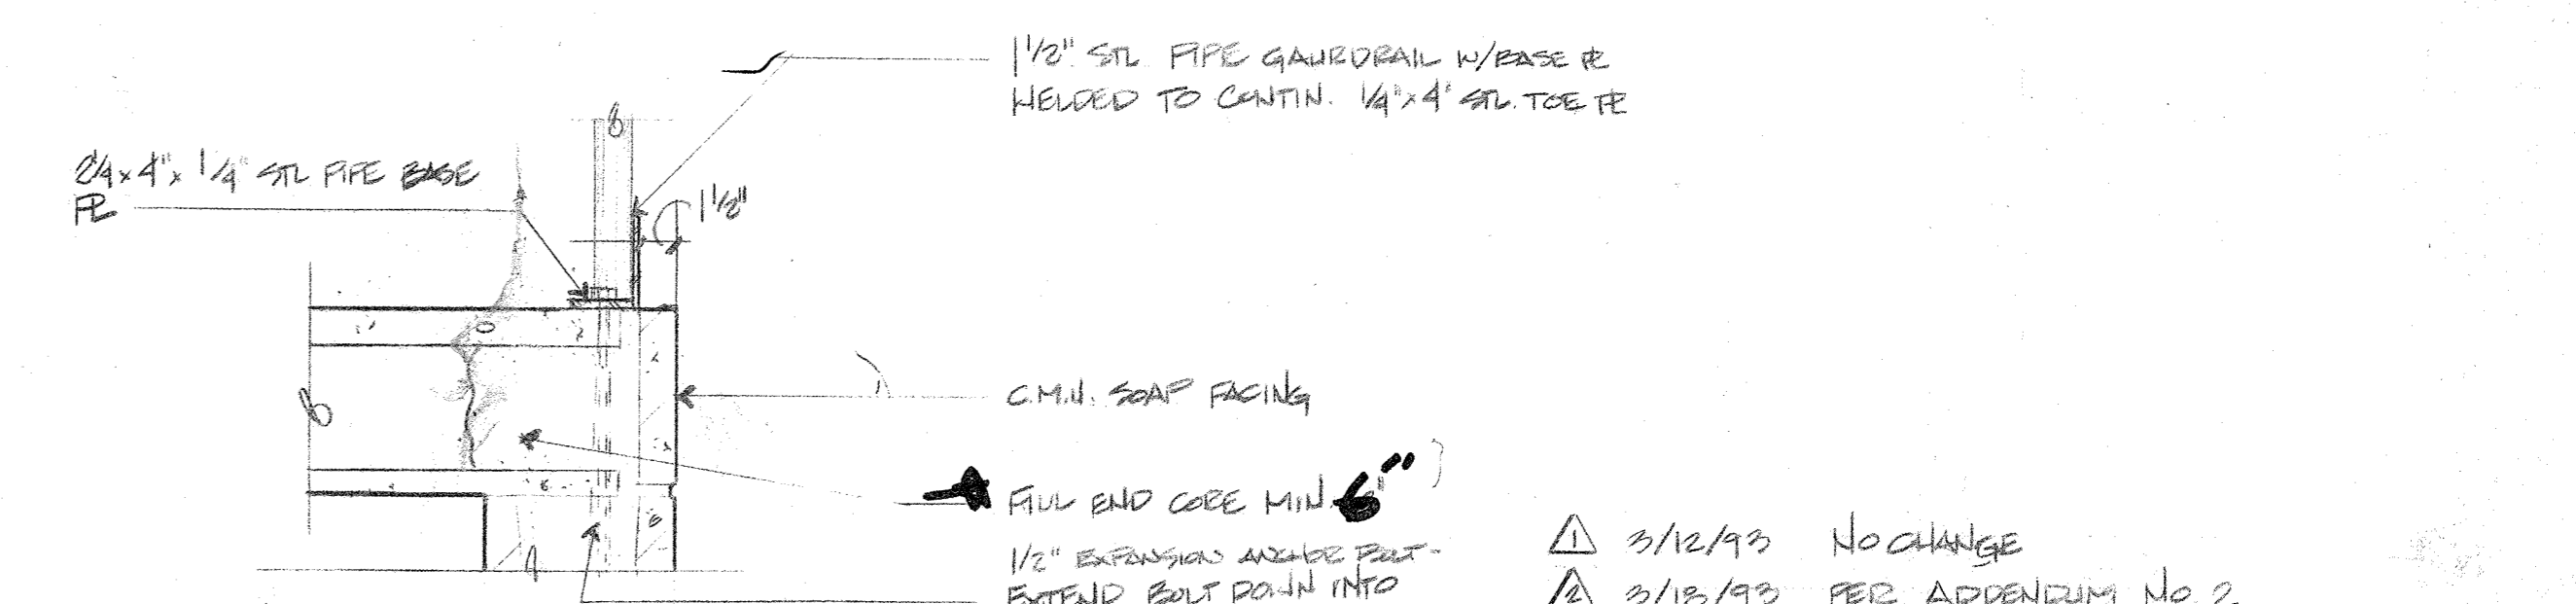 1 1/2" STL PIPE GAURDRAIL W/BASE PL
WELDED TO CONTIN. 1/4"x4" STL. TOE PL
2 1/4 x 4" x 1/4" STL PIPE BASE
PL
1 1/2"
C.M.U. SOAP FACING
FILL END CORE MIN. 6"
1/2" EXPANSION ANCHOR BOLT-
EXTEND BOLT DOWN INTO
1 3/12/93 NO CHANGE
2 3/18/93 PER ADDENDUM NO. 2